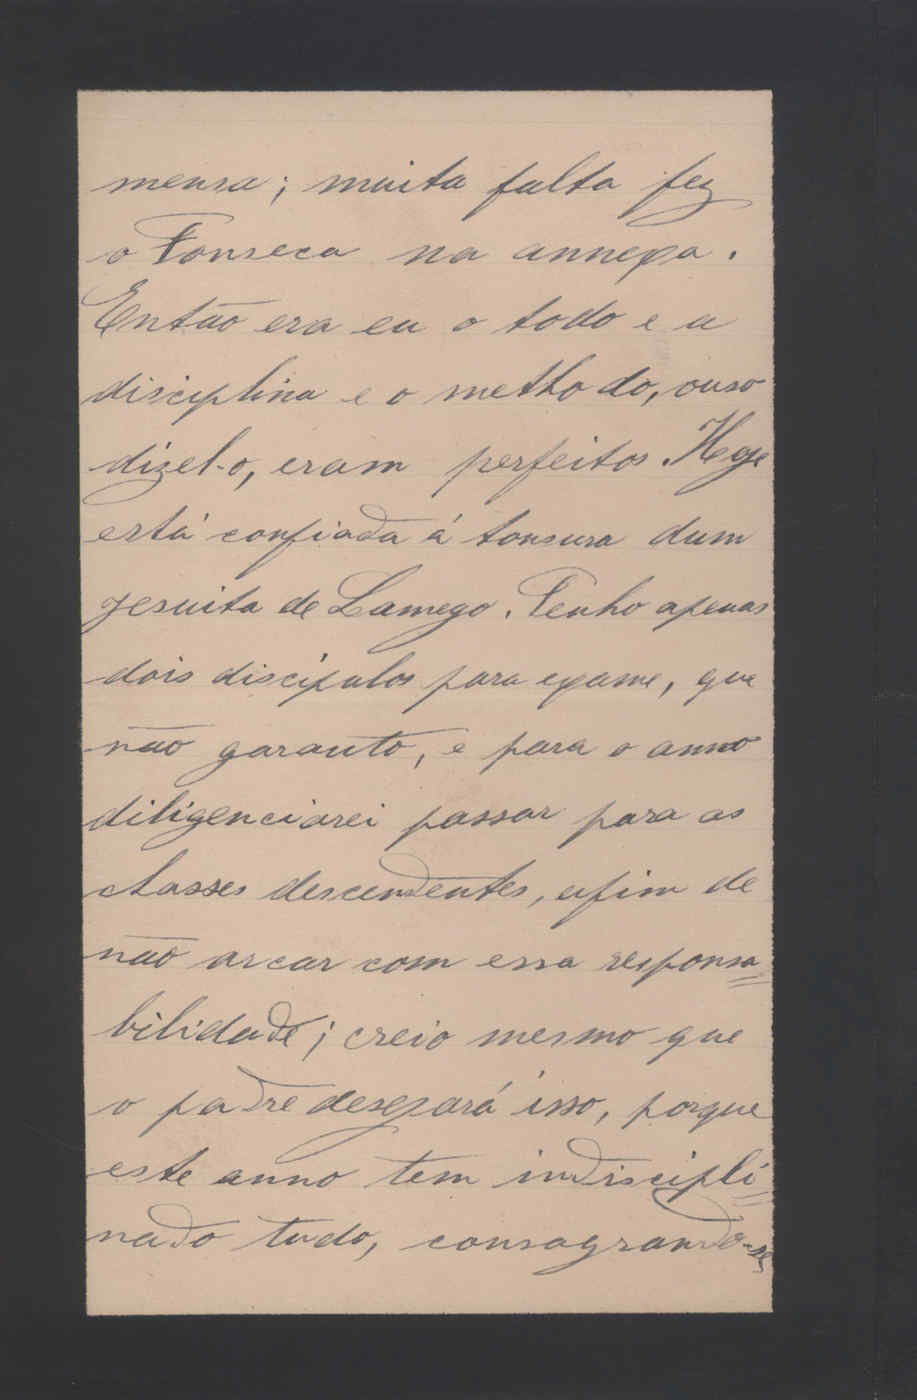 mensa; muita falta fez
o Fonseca na annexa.
Então era eu o todo e a
disciplina e o methodo, ouso
dizel-o, eram perfeitos. Hoje
está confiada á tonsura dum
jesuita de Lamego. Tenho apenas
dois discípulos para exame, que
não garanto, e para o anno
diligenciarei passar para as
classes descendentes, afim de
não arcar com essa responsa=
bilidade; creio mesmo que
o padre desejará isso, porque
este anno tem indiscipli=
nado tudo, consagrando-se